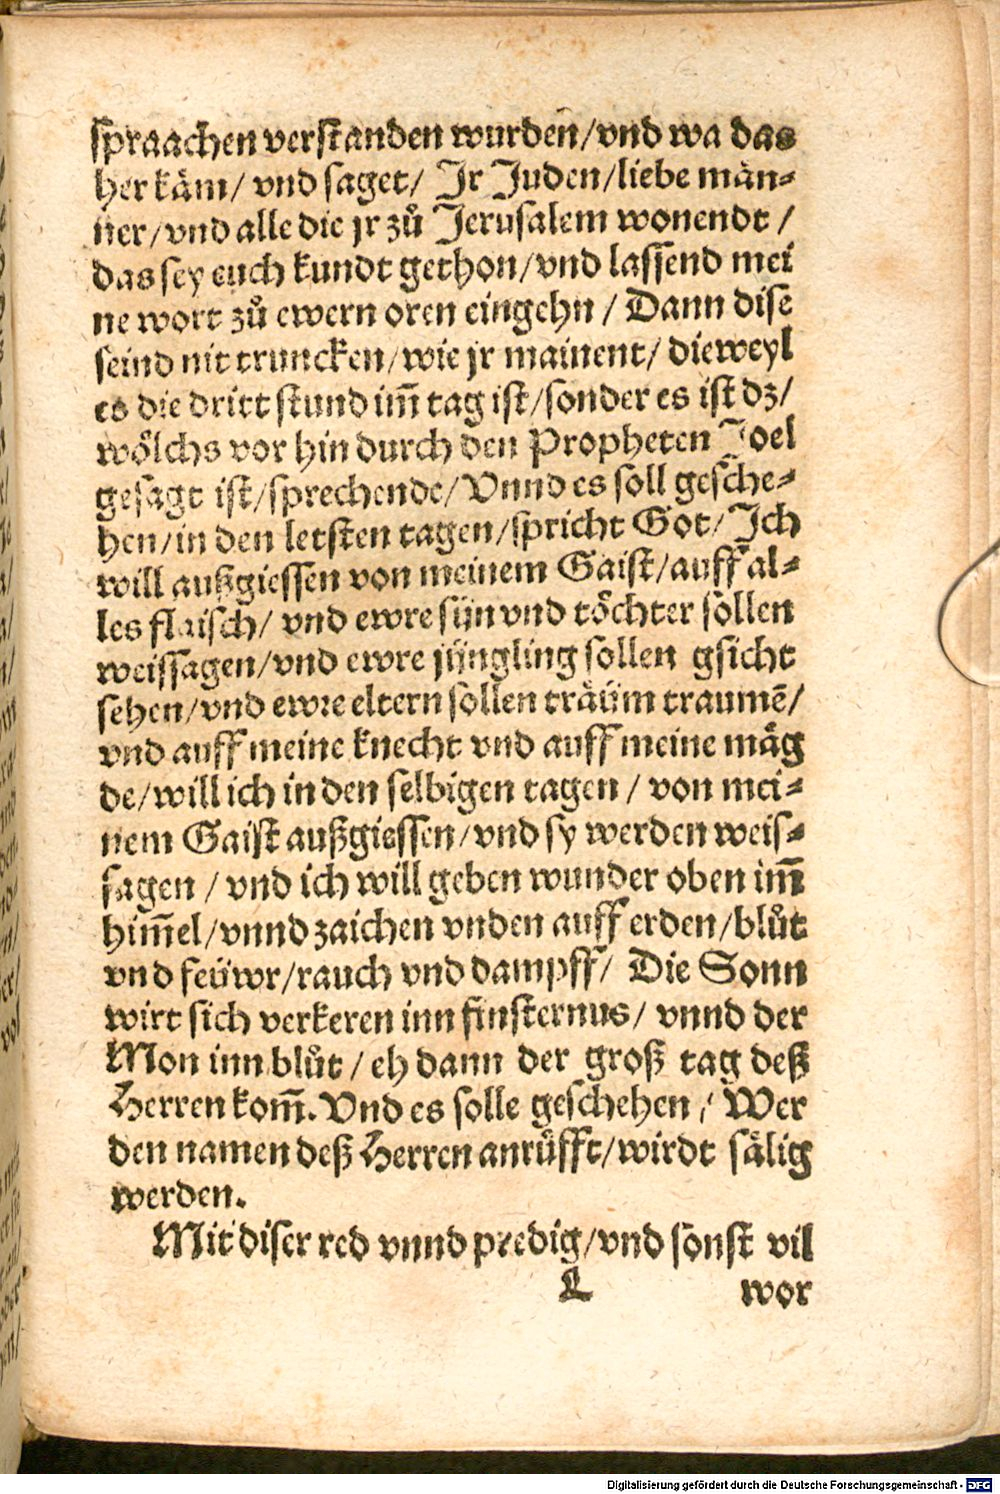 spraachen verstanden wurden/vnd wa das
her käm/ vnd saget/ Jr Juden/liebe män-
ner/vnd alle die jr zů Jerusalem wonendt /
das sey euch kundt gethon/vnd lassend mei
ne wort zů ewern oren eingehn / Dann dise
seind nit truncken/wie jr mainent/ dieweyl
es die dritt stund im̃ tag ist/sonder es ist dz/
wölchs vor hin durch den Propheten Joel
gesagt ist/sprechende/Vnnd es soll gesche-
hen/in den letsten tagen/spricht Got/Ich
will außgiessen von meinem Gaist/auff al-
les flaisch/ vnd ewre sün vnd töchter söllen
weissagen/vnd ewre jüngling sollen gsicht
sehen/vnd ewre eltern sollen träüm traumẽ/
vnd auff meine knecht vnd auff meine mäg
de/will ich in den selbigen tagen / von mei-
nem Gaist außgiessen/vnd sy werden weis-
sagen / vnd ich will geben wunder oben im̃
him̃el/vnnd zaichen vnden auff erden/blůt
vnd feüwr/rauch vnd dampff/ Die Sonn
wirt sich verkeren inn finsternus/ vnnd der
Mon inn blůt / eh dann der groß tag deß
Herren kom̃. Vnd es solle geschehen / Wer
den namen deß Herren anrüfft/wirdt sälig
werden.
Mit diser red vnnd predig/vnd sonst vil
L wor
Digitalisierung gefördert durch die Deutsche Forschungsgemeinschaft - DFG